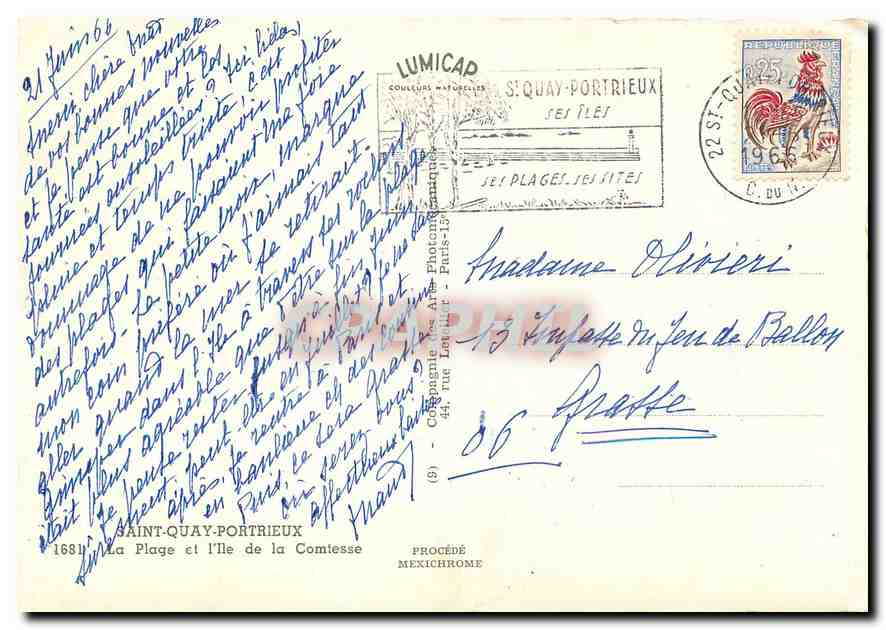 21 Juin 66
Merci, chère
de vos bonnes nouvelles
et je pense que votre
santé est bonne et les
journées ensoleillées? Ici, hélas,
pluie et temps triste, c'est
dommage de ne pouvoir profiter
des plages qui faisaient ma joie
autrefois - La petite croix, marque
mon coin préféré où j'aimais tant
aller quand la mer se retirait.
Grimper dans l'Ile à travers les rochers
était plus agréable que d'être sur la plage
Je pense rester jusqu'à fin Juin
sûrement, peut-être en Juillet?
après. Je rentre à Paris et
en banlieue et
Puis, ce sera Grasse
où serez vous?
affectueux
LUMICAP
COULEURS NATURELLES
ST QUAY-PORTRIEUX
SES ÎLES
SES PLAGES. SES SITES
22 ST-QUAY
1966
C. DU N.
REPUBLIQUE FRANÇAISE
25
Madame Olivieri
13 Impasse du Jeu de Ballon
Grasse
06
(9) - Compagnie des Arts Photomécaniques
44, rue Letellier - Paris-15e
CPAPHIL
SAINT-QUAY-PORTRIEUX
1681 La Plage et l'Ile de la Comtesse
PROCÉDÉ
MEXICHROME